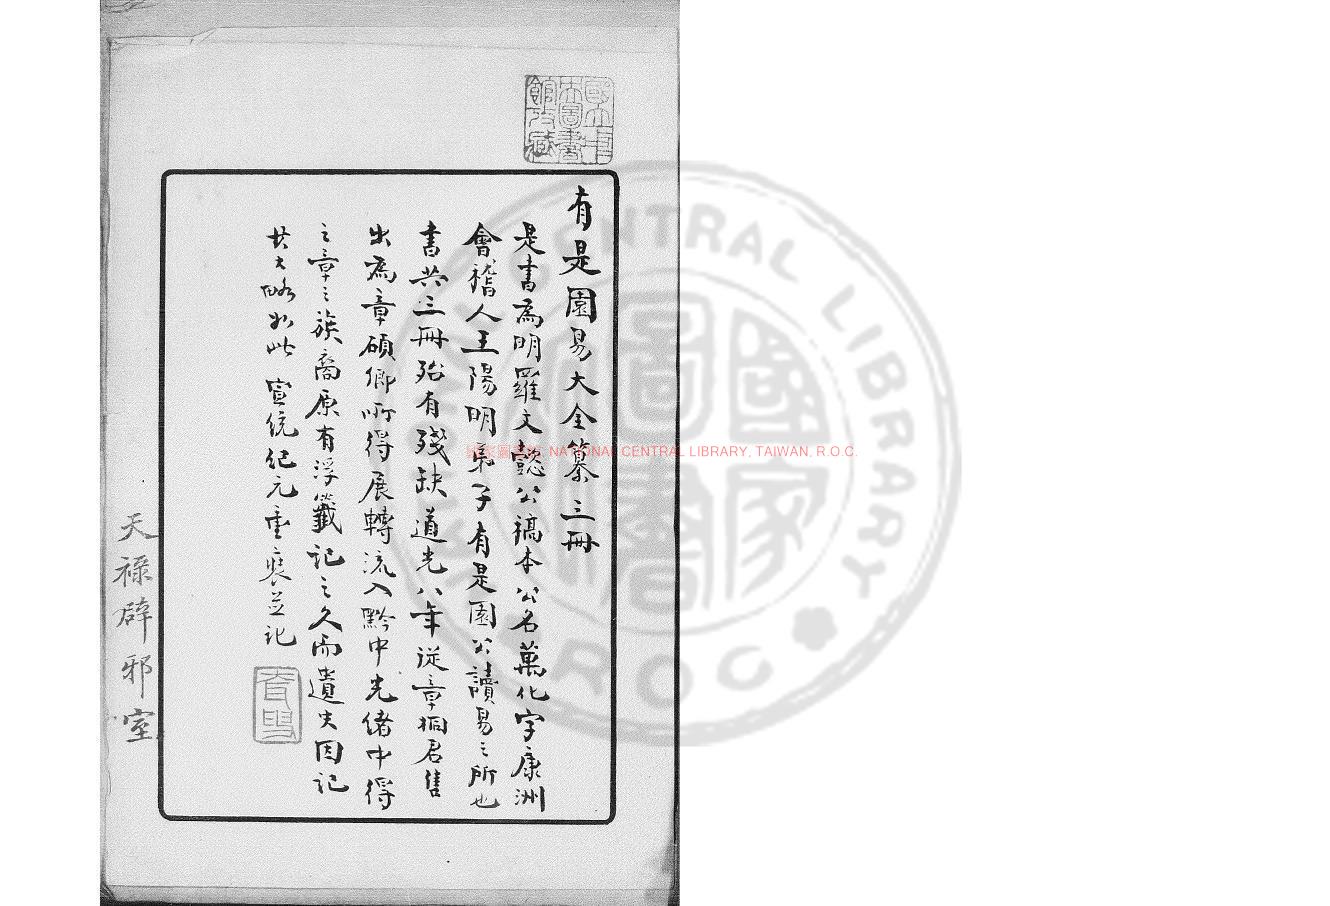 有是園易大全纂三冊
是書為明羅文懿公稿本公名萬化字康洲
會稽人王陽明弟子有是園公讀易之所也
書共三冊殆有殘缺道光八年從章桐君售
出為章碩卿所得展轉流入黔中光緒中得
之章之族裔原有浮籤記之久而遺失因記
其大略如此 宣統紀元重裝並記
天祿辟邪室
國立中央圖書館收藏
國家圖書館 NATIONAL CENTRAL LIBRARY, TAIWAN, R.O.C.
CENTRAL LIBRARY
R O C
國家圖書館